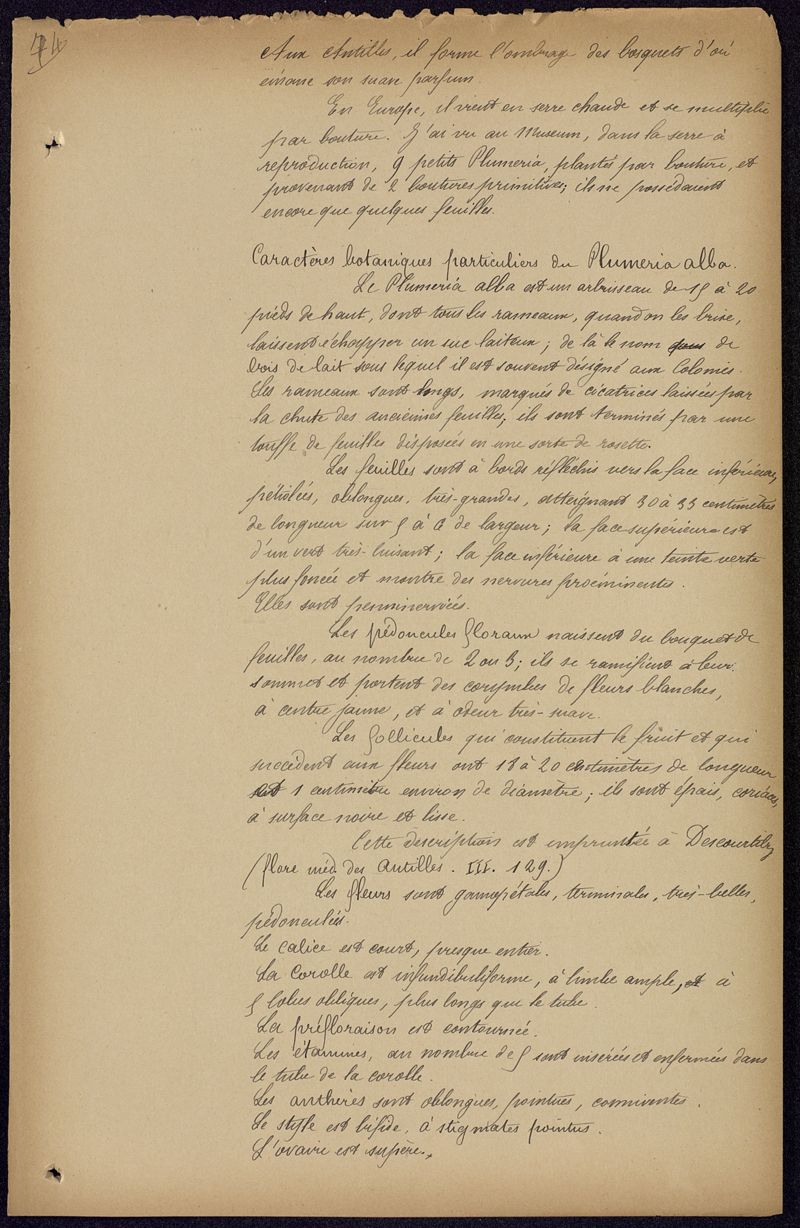 Aux Antilles, il forme l'ombrage des bosquets d'où
émane son suave parfum.
En Europe, il vient en serre chaude et se multiplie
par bouture. J'ai vu au Museum, dans la serre à
reproduction, 9 petits Plumeria, plantés par bouture, et
provenant de 2 boutures primitives; ils ne possédaient
encore que quelques feuilles.
Caractères botaniques particuliers du Plumeria alba.
Le Plumeria alba est un arbrisseau de 15 à 20
pieds de haut, dont tous les rameaux, quand on les brise,
laissent échapper un suc laiteux; de là le nom de
bois de lait sous lequel il est souvent désigné aux Colonies.
Les rameaux sont longs, marqués de cicatrices laissées par
la chute des anciennes feuilles; ils sont terminés par une
touffe de feuilles disposées en une sorte de rosette.
Les feuilles sont à bords réfléchis vers la face inférieure,
pétiolées, oblongues, très-grandes, atteignant 30 à 35 centimètres
de longueur sur 5 à 6 de largeur; la face supérieure est
d'un vert très-luisant; la face inférieure à une teinte verte
plus foncée et montre des nervures proéminentes.
Elles sont penninerviées.
Les pédoncules floraux naissent du bouquet de
feuilles, au nombre de 2 ou 3; ils se ramifient à leur
sommet et portent des corymbes de fleurs blanches,
à centre jaune, et à odeur très-suave.
Les follicules qui constituent le fruit et qui
succèdent aux fleurs ont 18 à 20 centimètres de longueur
et 1 centimètre environ de diamètre; ils sont épais, coriaces,
à surface noire et lisse.
Cette description est empruntée à Descourtilz
(flore méd des Antilles. III. 129.)
Les fleurs sont gamopétales, terminales, très-belles,
pédonculées.
Le calice est court, presque entier.
La corolle est infundibuliforme, à limbe ample, et à
5 lobes obliques, plus longs que le tube.
La préfloraison est contournée.
Les étamines, au nombre de 5 sont insérées et enfermées dans
le tube de la corolle.
Les anthères sont oblongues, pointues, conniventes.
Le style est bifide, à stigmates pointus.
L'ovaire est supère,